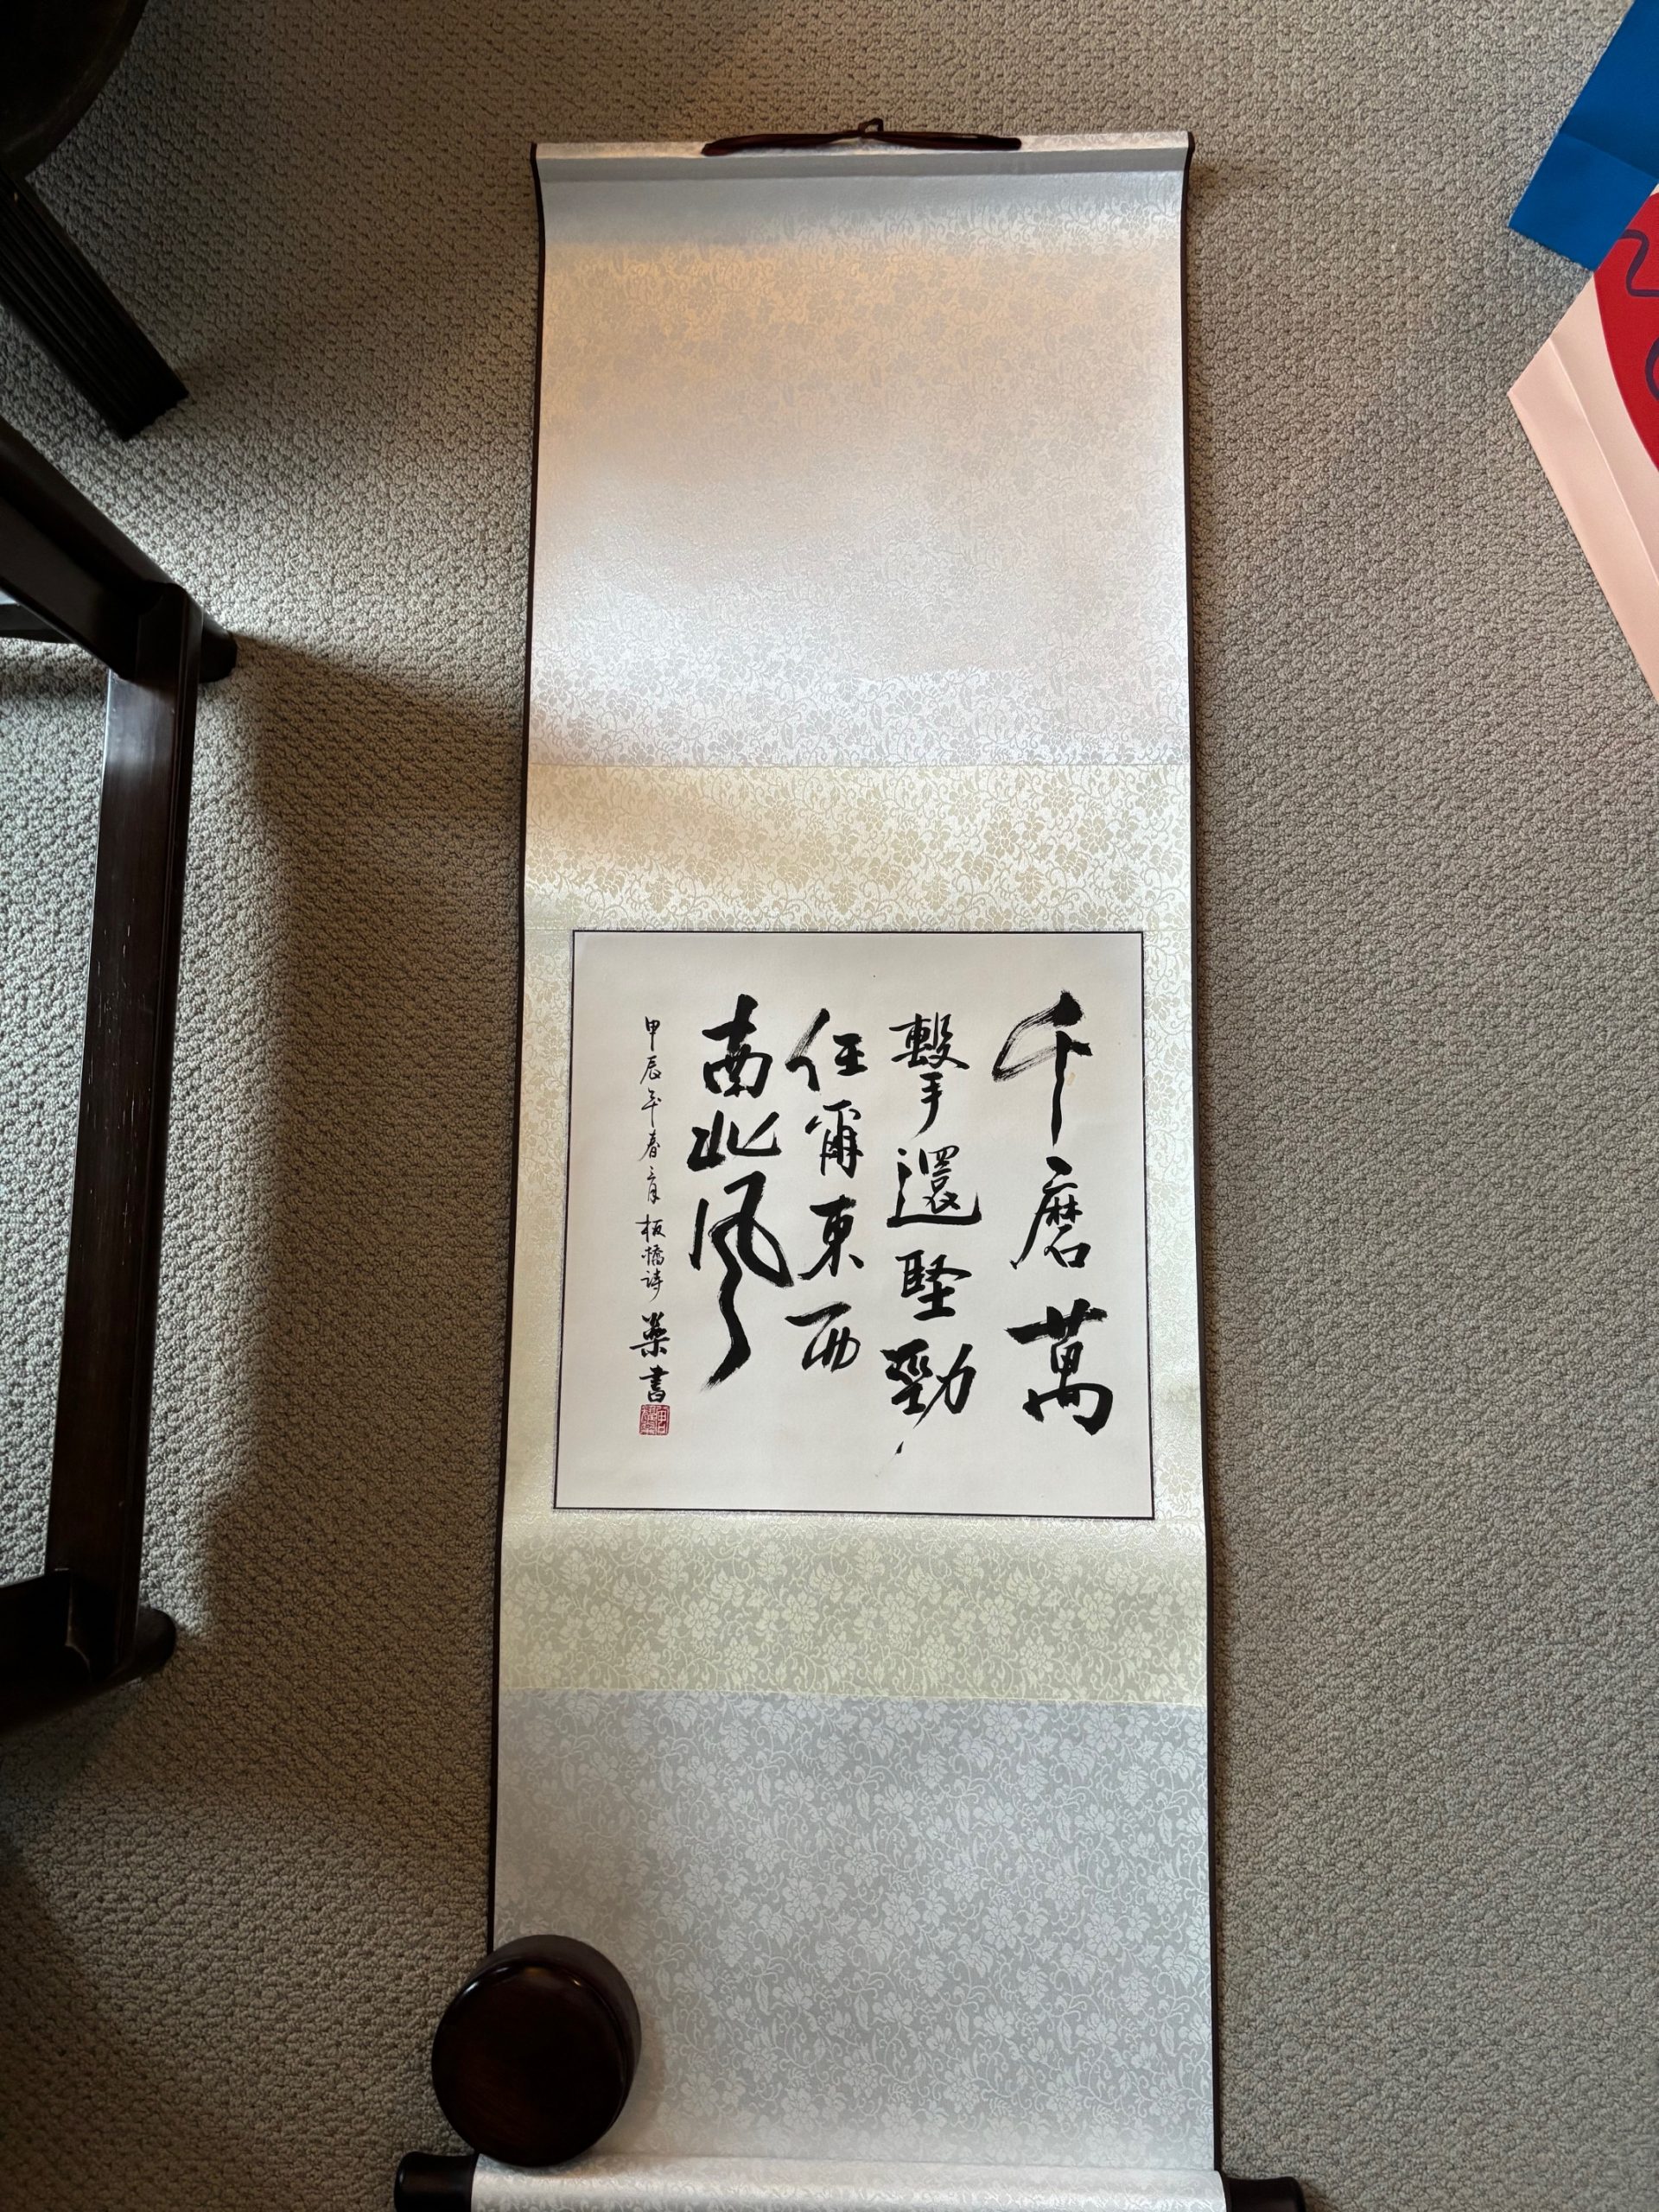 千磨萬
擊還堅勁
任爾東西
南北風
甲辰年春二月 板橋诗 藥書